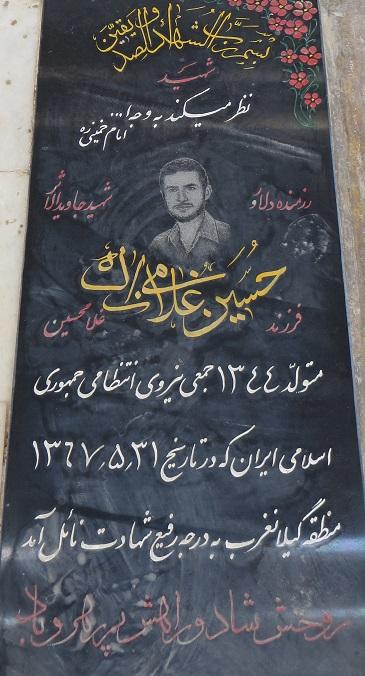 بسم رب الشهداء و الصدیقین
شهید
نظر میکند به وجه الله
امام خمینی ره
رزمنده دلاور
شهید جاویدالاثر
حسین غلامی
فرزند
غلامحسین
متولد ۱۳۴۴ جمعی نیروی انتظامی جمهوری
اسلامی ایران که در تاریخ ۱۳۶۷٫۵٫۳۱
منطقه گیلانغرب به درجه رفیع شهادت نائل آمد
روحش شاد و راهش پر رهرو باد